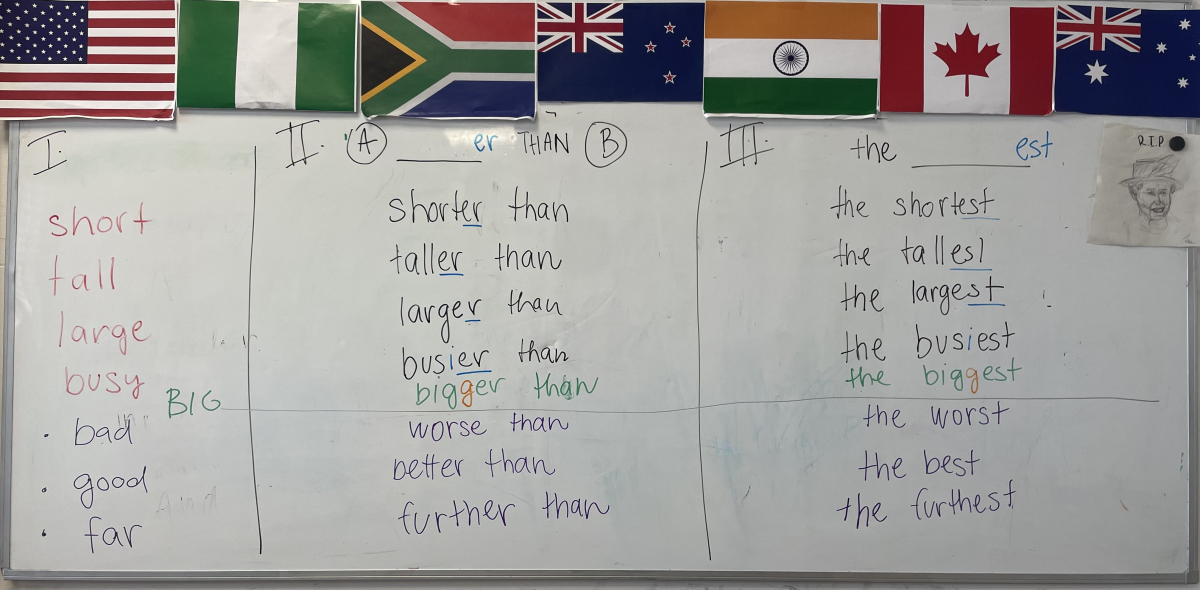 I.
short
tall
large
busy
BIG
· bad
· good
· far
II. A ______er THAN B
shorter than
taller than
larger than
busier than
bigger than
worse than
better than
further than
III. the ______est
the shortest
the tallest
the largest
the busiest
the biggest
the worst
the best
the furthest
R.I.P